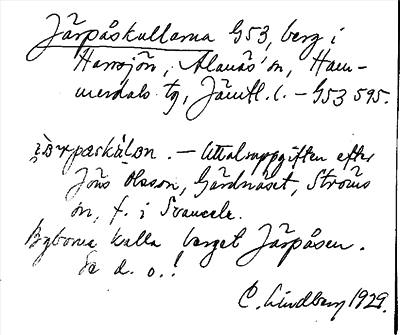 Järpåskullarna G53, berg i
Harrsjön, Alanäs sn, Ham-
merdals tg, Jämtl. l. – G53 595.
Uttalsuppgiften efter
Jöns Olsson, Gärdnäset, Ströms
sn, f. i Svaneele.
Byborna kalla berget Järpåsen.
Se d. o.!
C. Lindberg 1929.